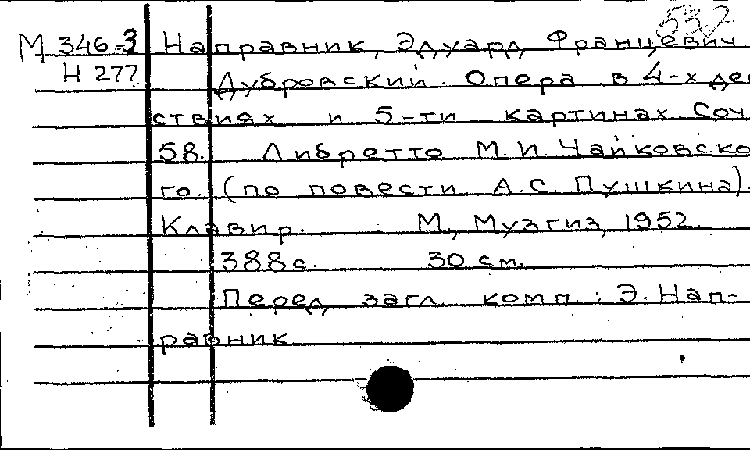 532
М 346-3 Направник, Эдуард Францевич
Н 277 Дубровский. Опера в 4-х дей
ствиях и 5-ти картинах. Соч.
58. Либретто М.И. Чайковско
го. (по повести А.С. Пушкина).
Клавир. М., Музгиз, 1952.
388с. 30 см.
Перед загл. комп.: Э. Нап-
равник